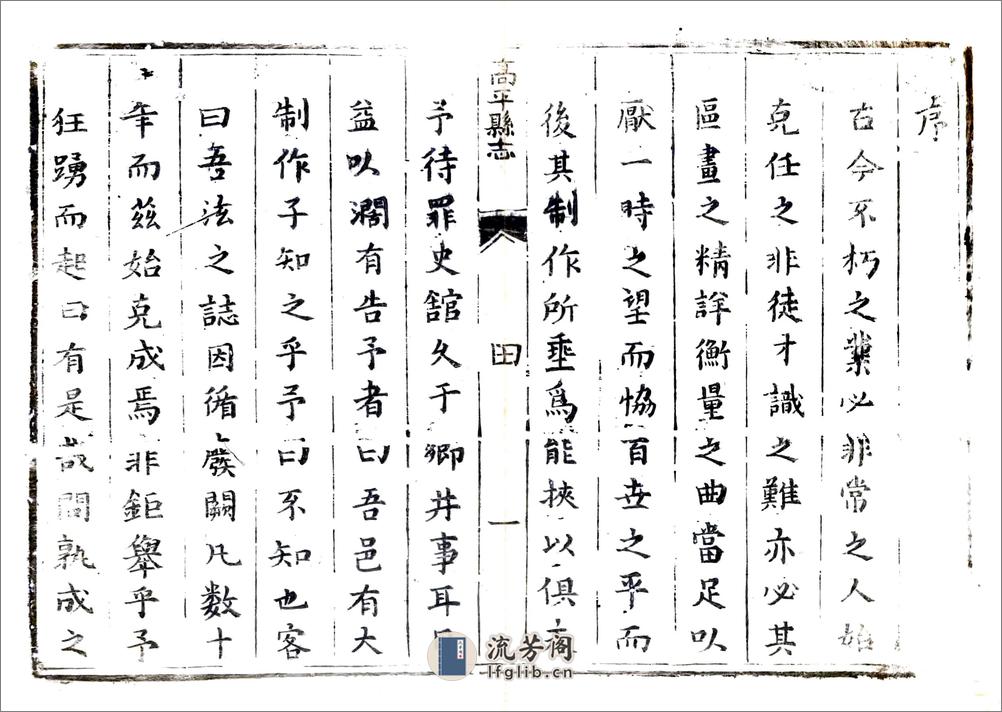 序
古今不朽之業必非常之人始
克任之非徒才識之難亦必其
區畫之精詳衡量之曲當足以
厭一時之望而恊百世之平而
後其制作所垂爲能挾以俱
高平縣志
田
一
予待罪史舘久于鄉井事耳
益以濶有告予者曰吾邑有大
制作子知之乎予曰不知也客
曰吾法之誌因循廢闕凡数十
年而兹始克成焉非鉅舉乎予
狂踴而起曰有是哉問孰成之
流芳阁
lfglib.cn